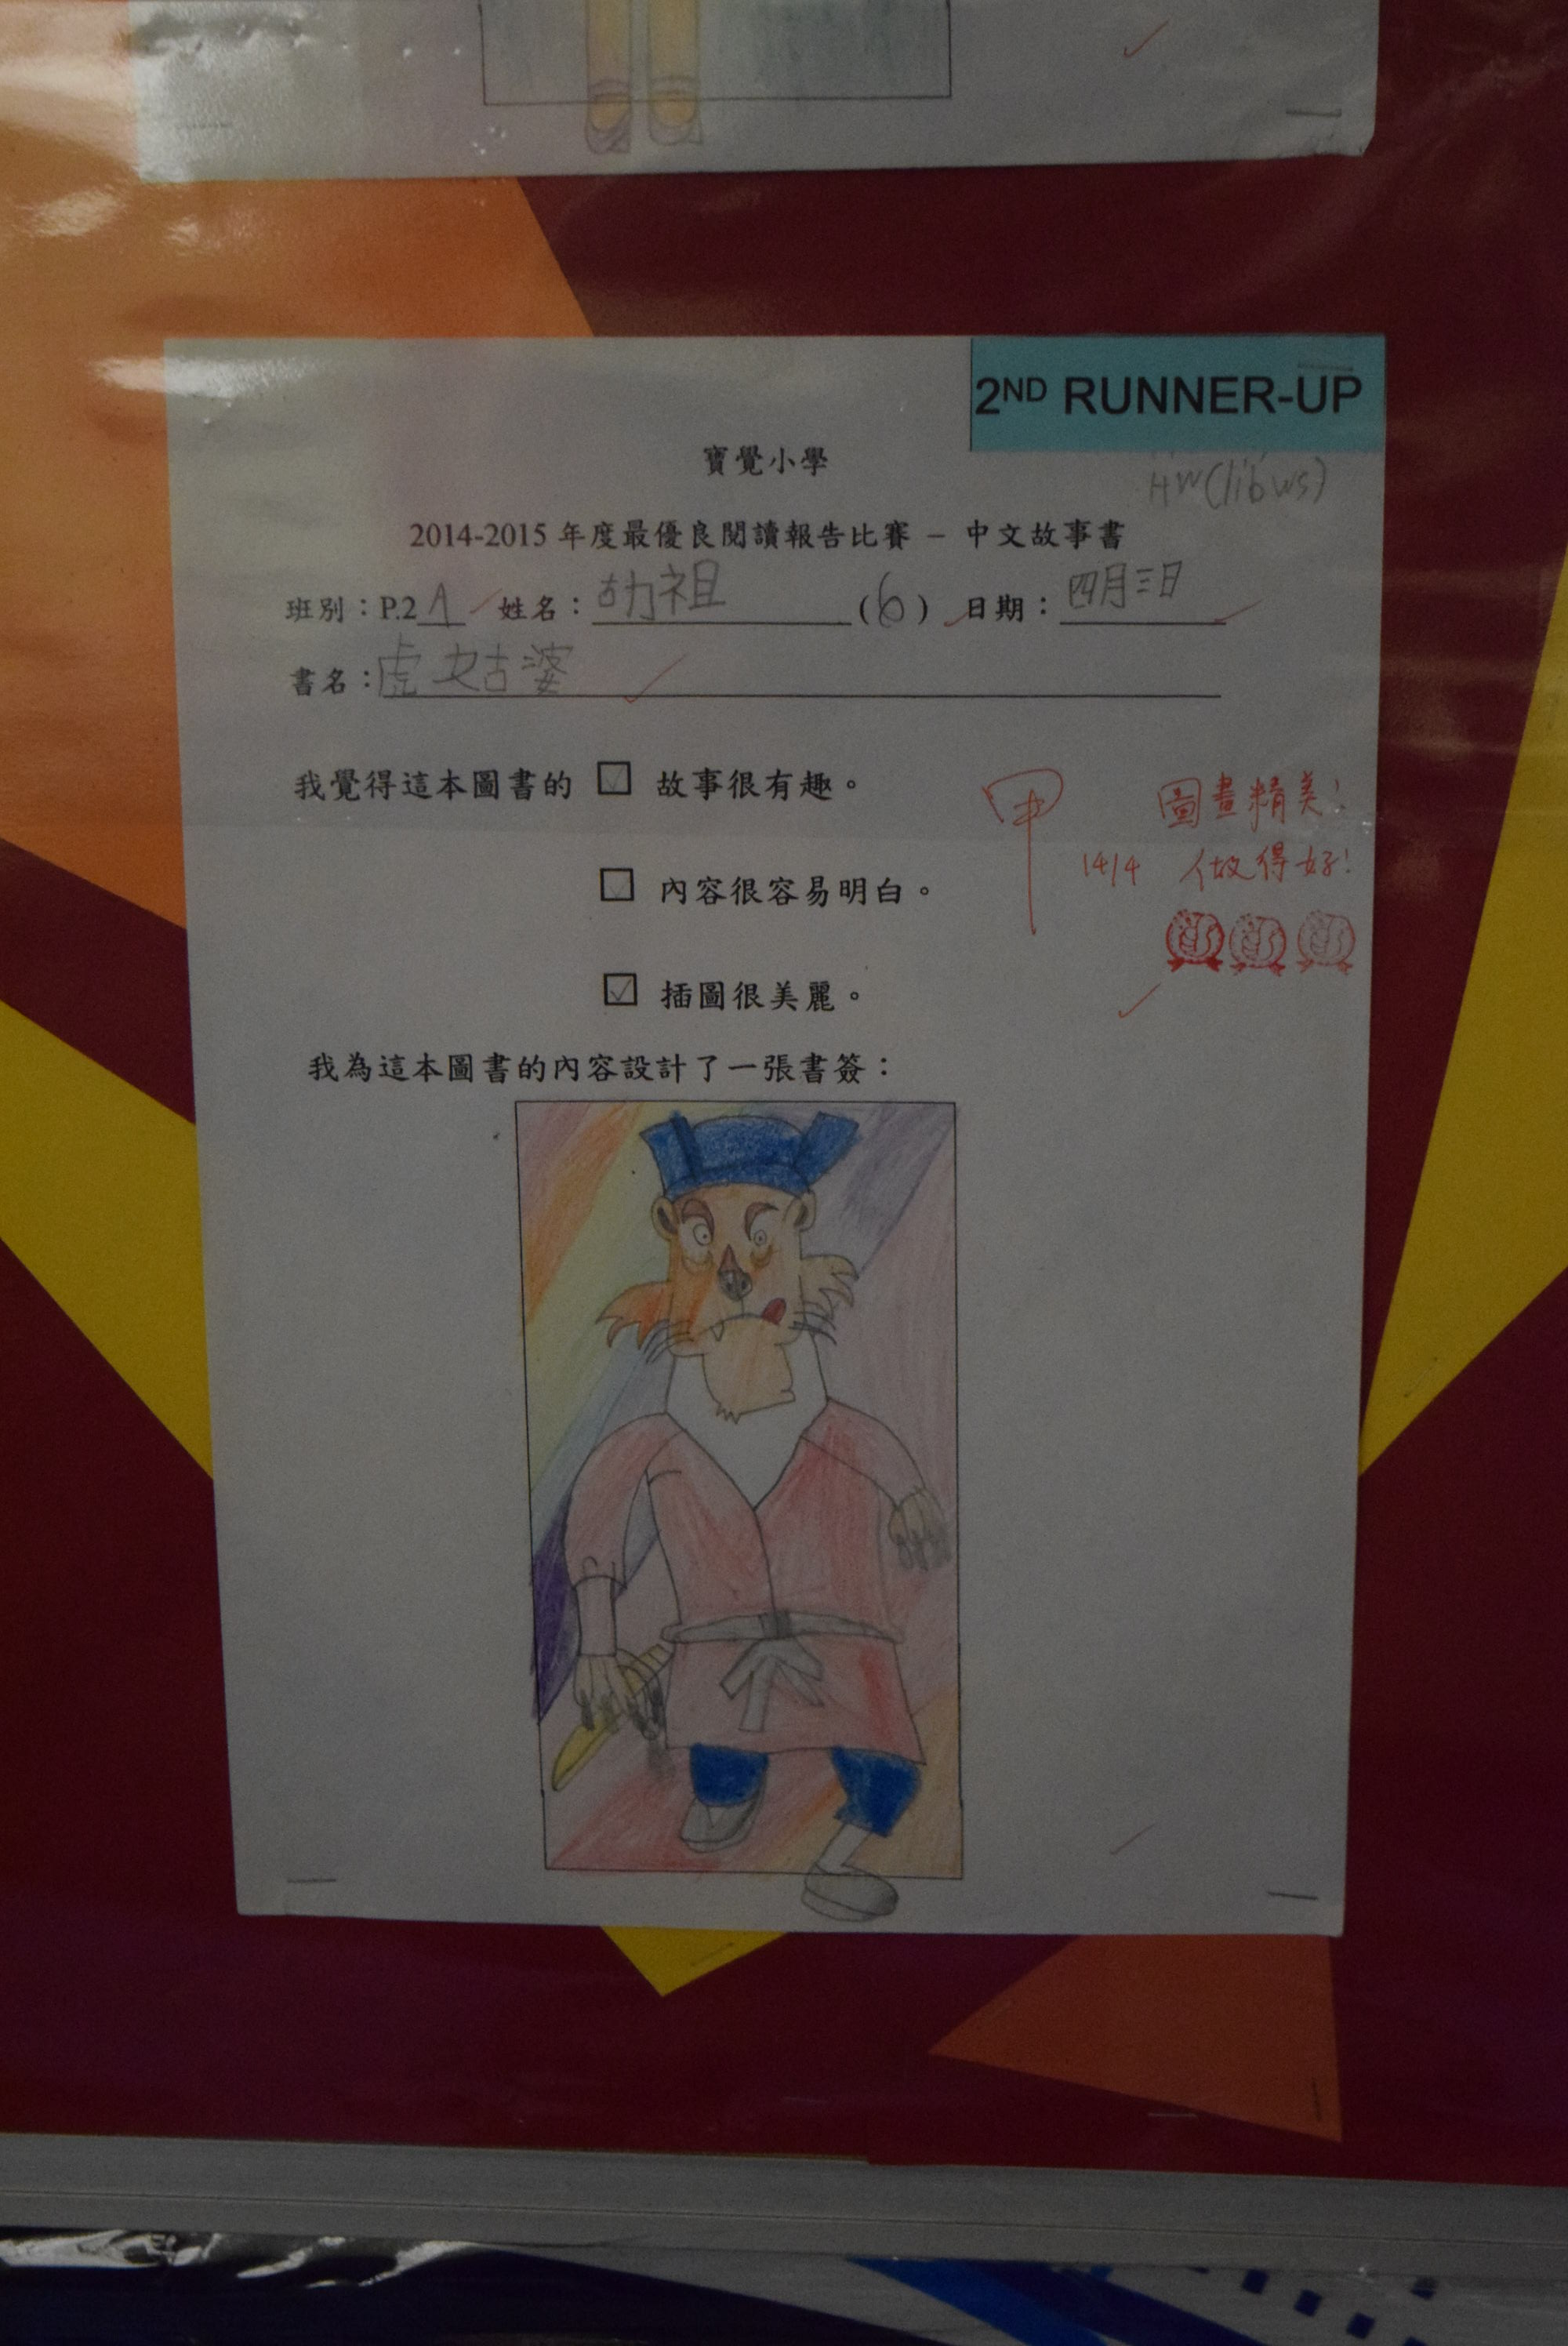 2ND RUNNER-UP
寶覺小學
HW(lib ws)
2014-2015 年度最優良閱讀報告比賽 – 中文故事書
班別：P.2A 姓名：胡祖 (6) 日期：四月三日
書名：虎姑婆
我覺得這本圖書的 ☑ 故事很有趣。
甲 圖畫精美！
14/4 做得好！
☑ 內容很容易明白。
☑ 插圖很美麗。
我為這本圖書的內容設計了一張書簽：